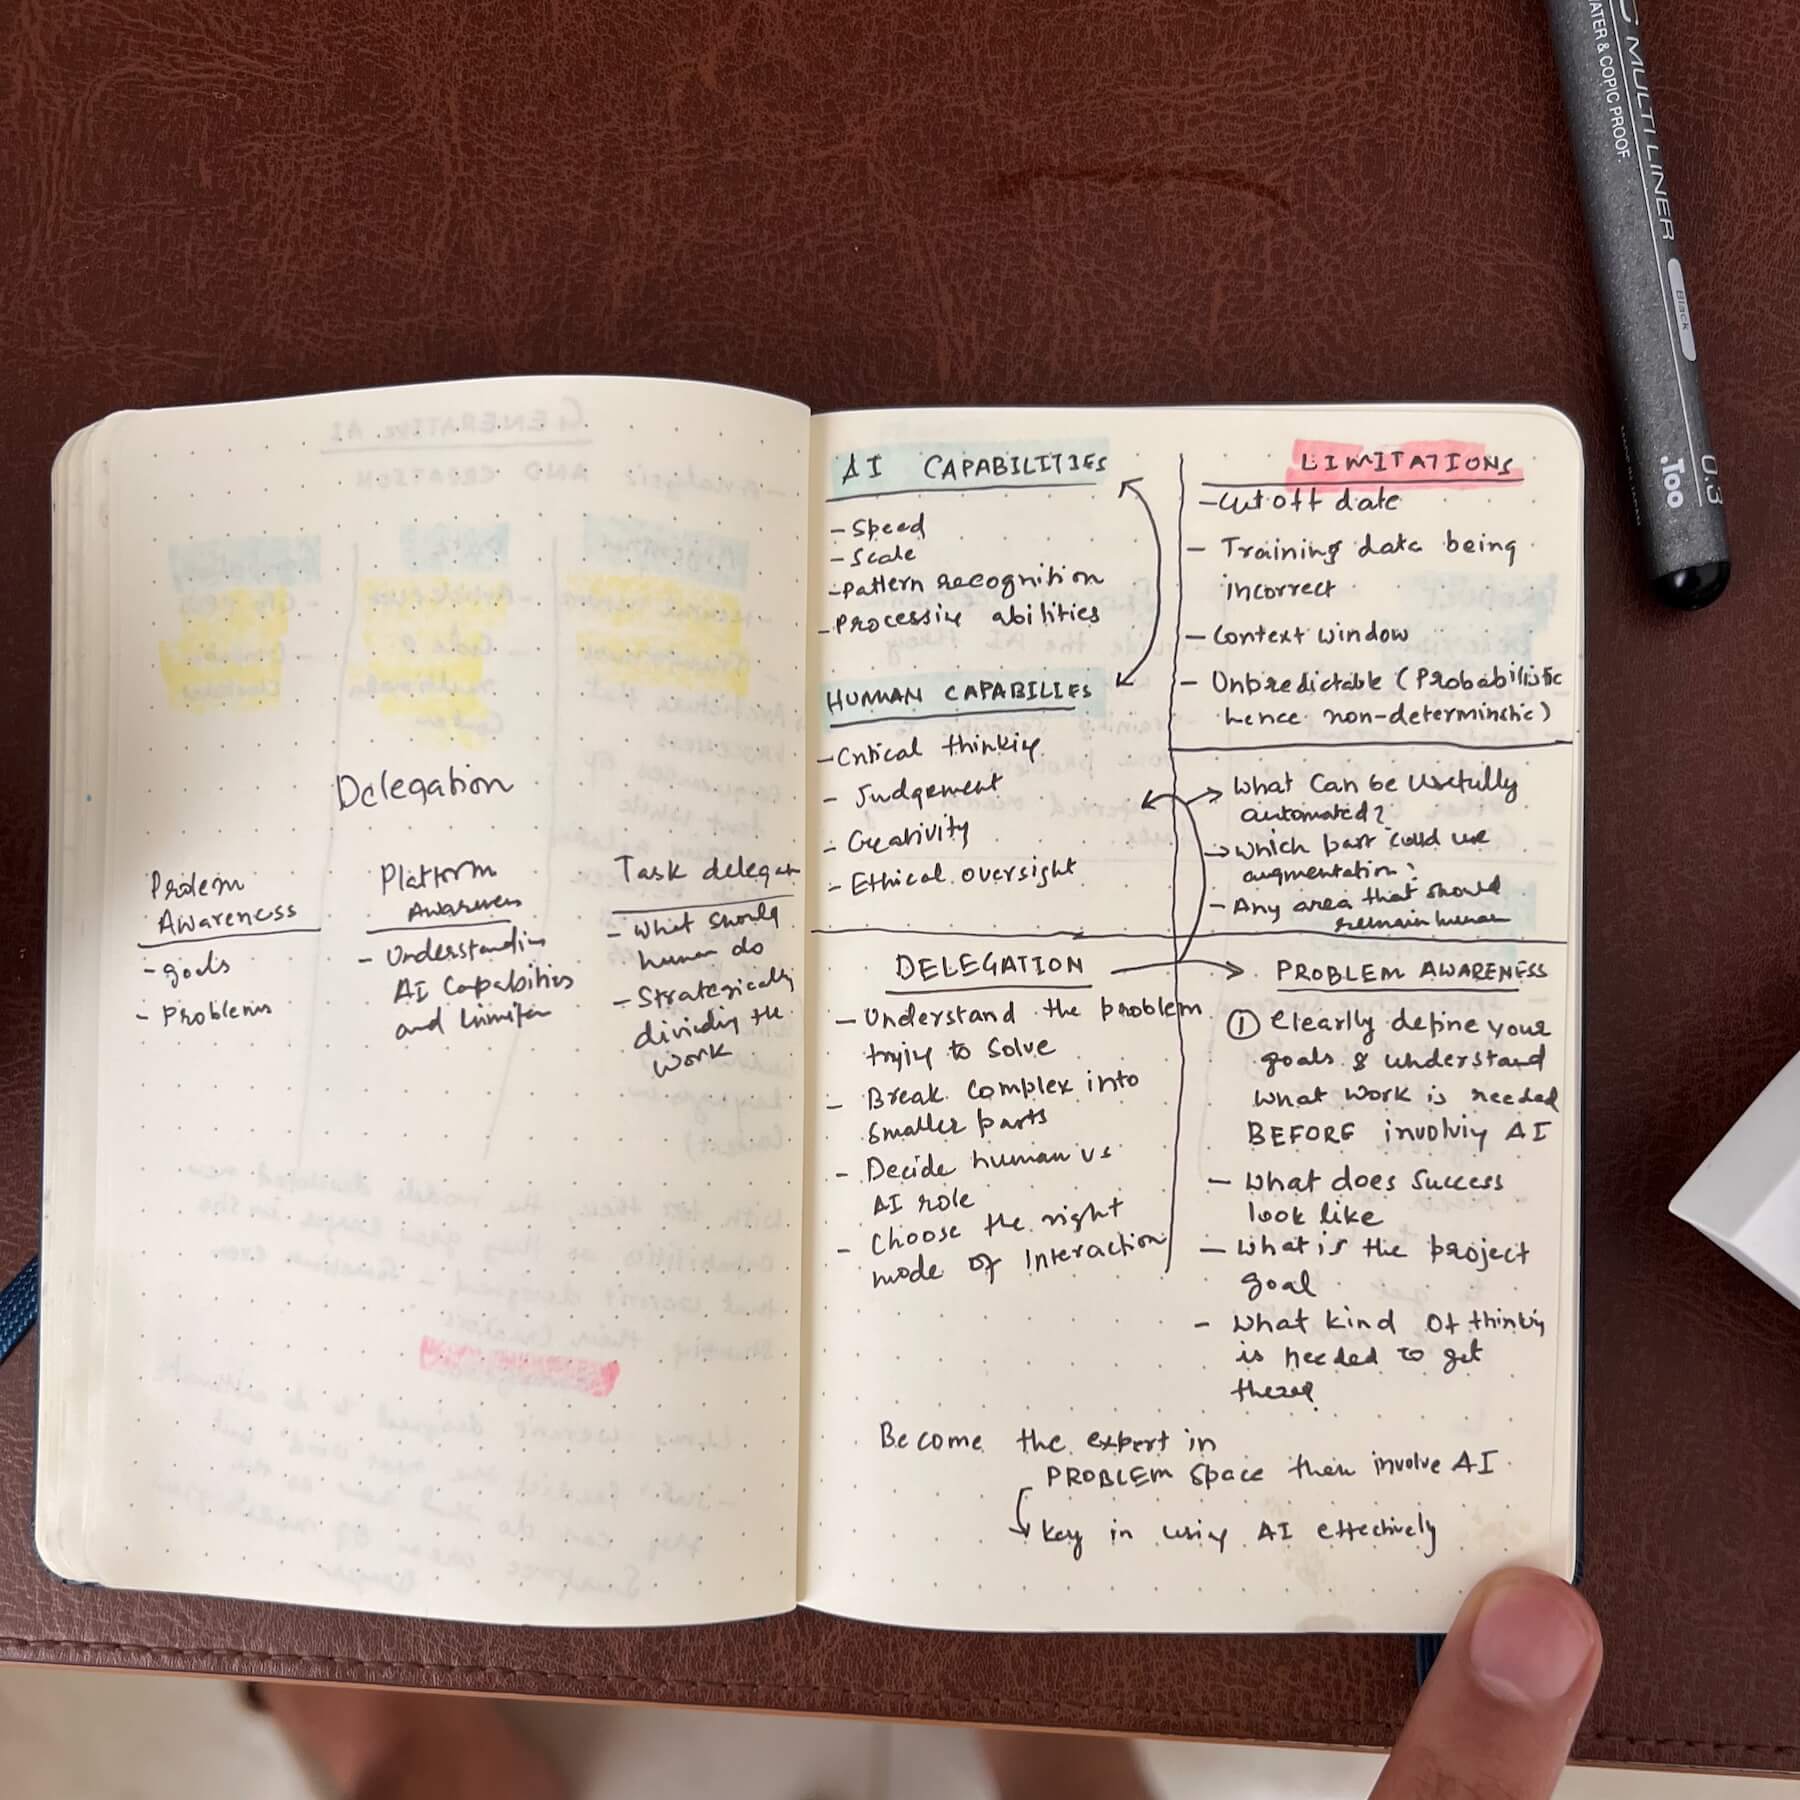 Delegation
Prolem
Awareness
- goals
- Problems
Platform
Awareness
- Understanding
AI Capabilities
and
Task delegation
- What should
human do
- Strategically
dividing the
work
AI CAPABILITIES
- Speed
- Scale
- Pattern recognition
- Processive abilities
HUMAN CAPABILIES
- Critical thinking
- Judgement
- Creativity
- Ethical oversight
LIMITATIONS
- Cut off date
- Training data being
incorrect
- Context window
- Unpredictable (Probabilistic
hence non-determinstic)
→ What can be usefully
automated?
→ which part could use
augmentation?
- Any area that should
remain human
DELEGATION
- Understand the problem
trying to solve
- Break complex into
smaller parts
- Decide human vs
AI role
- Choose the right
mode of interaction
PROBLEM AWARENESS
① Clearlly define your
goals & understand
what work is needed
BEFORE involving AI
- What does success
look like
- What is the project
goal
- What kind of thinking
is needed to get
Become the expert in
PROBLEM space then involve AI
key in using AI effectively
MULTI LINER
WATER & COPIC PROOF.
Black
0.3
.Too
GENERATIVE AI
- Analysis AND CREATION